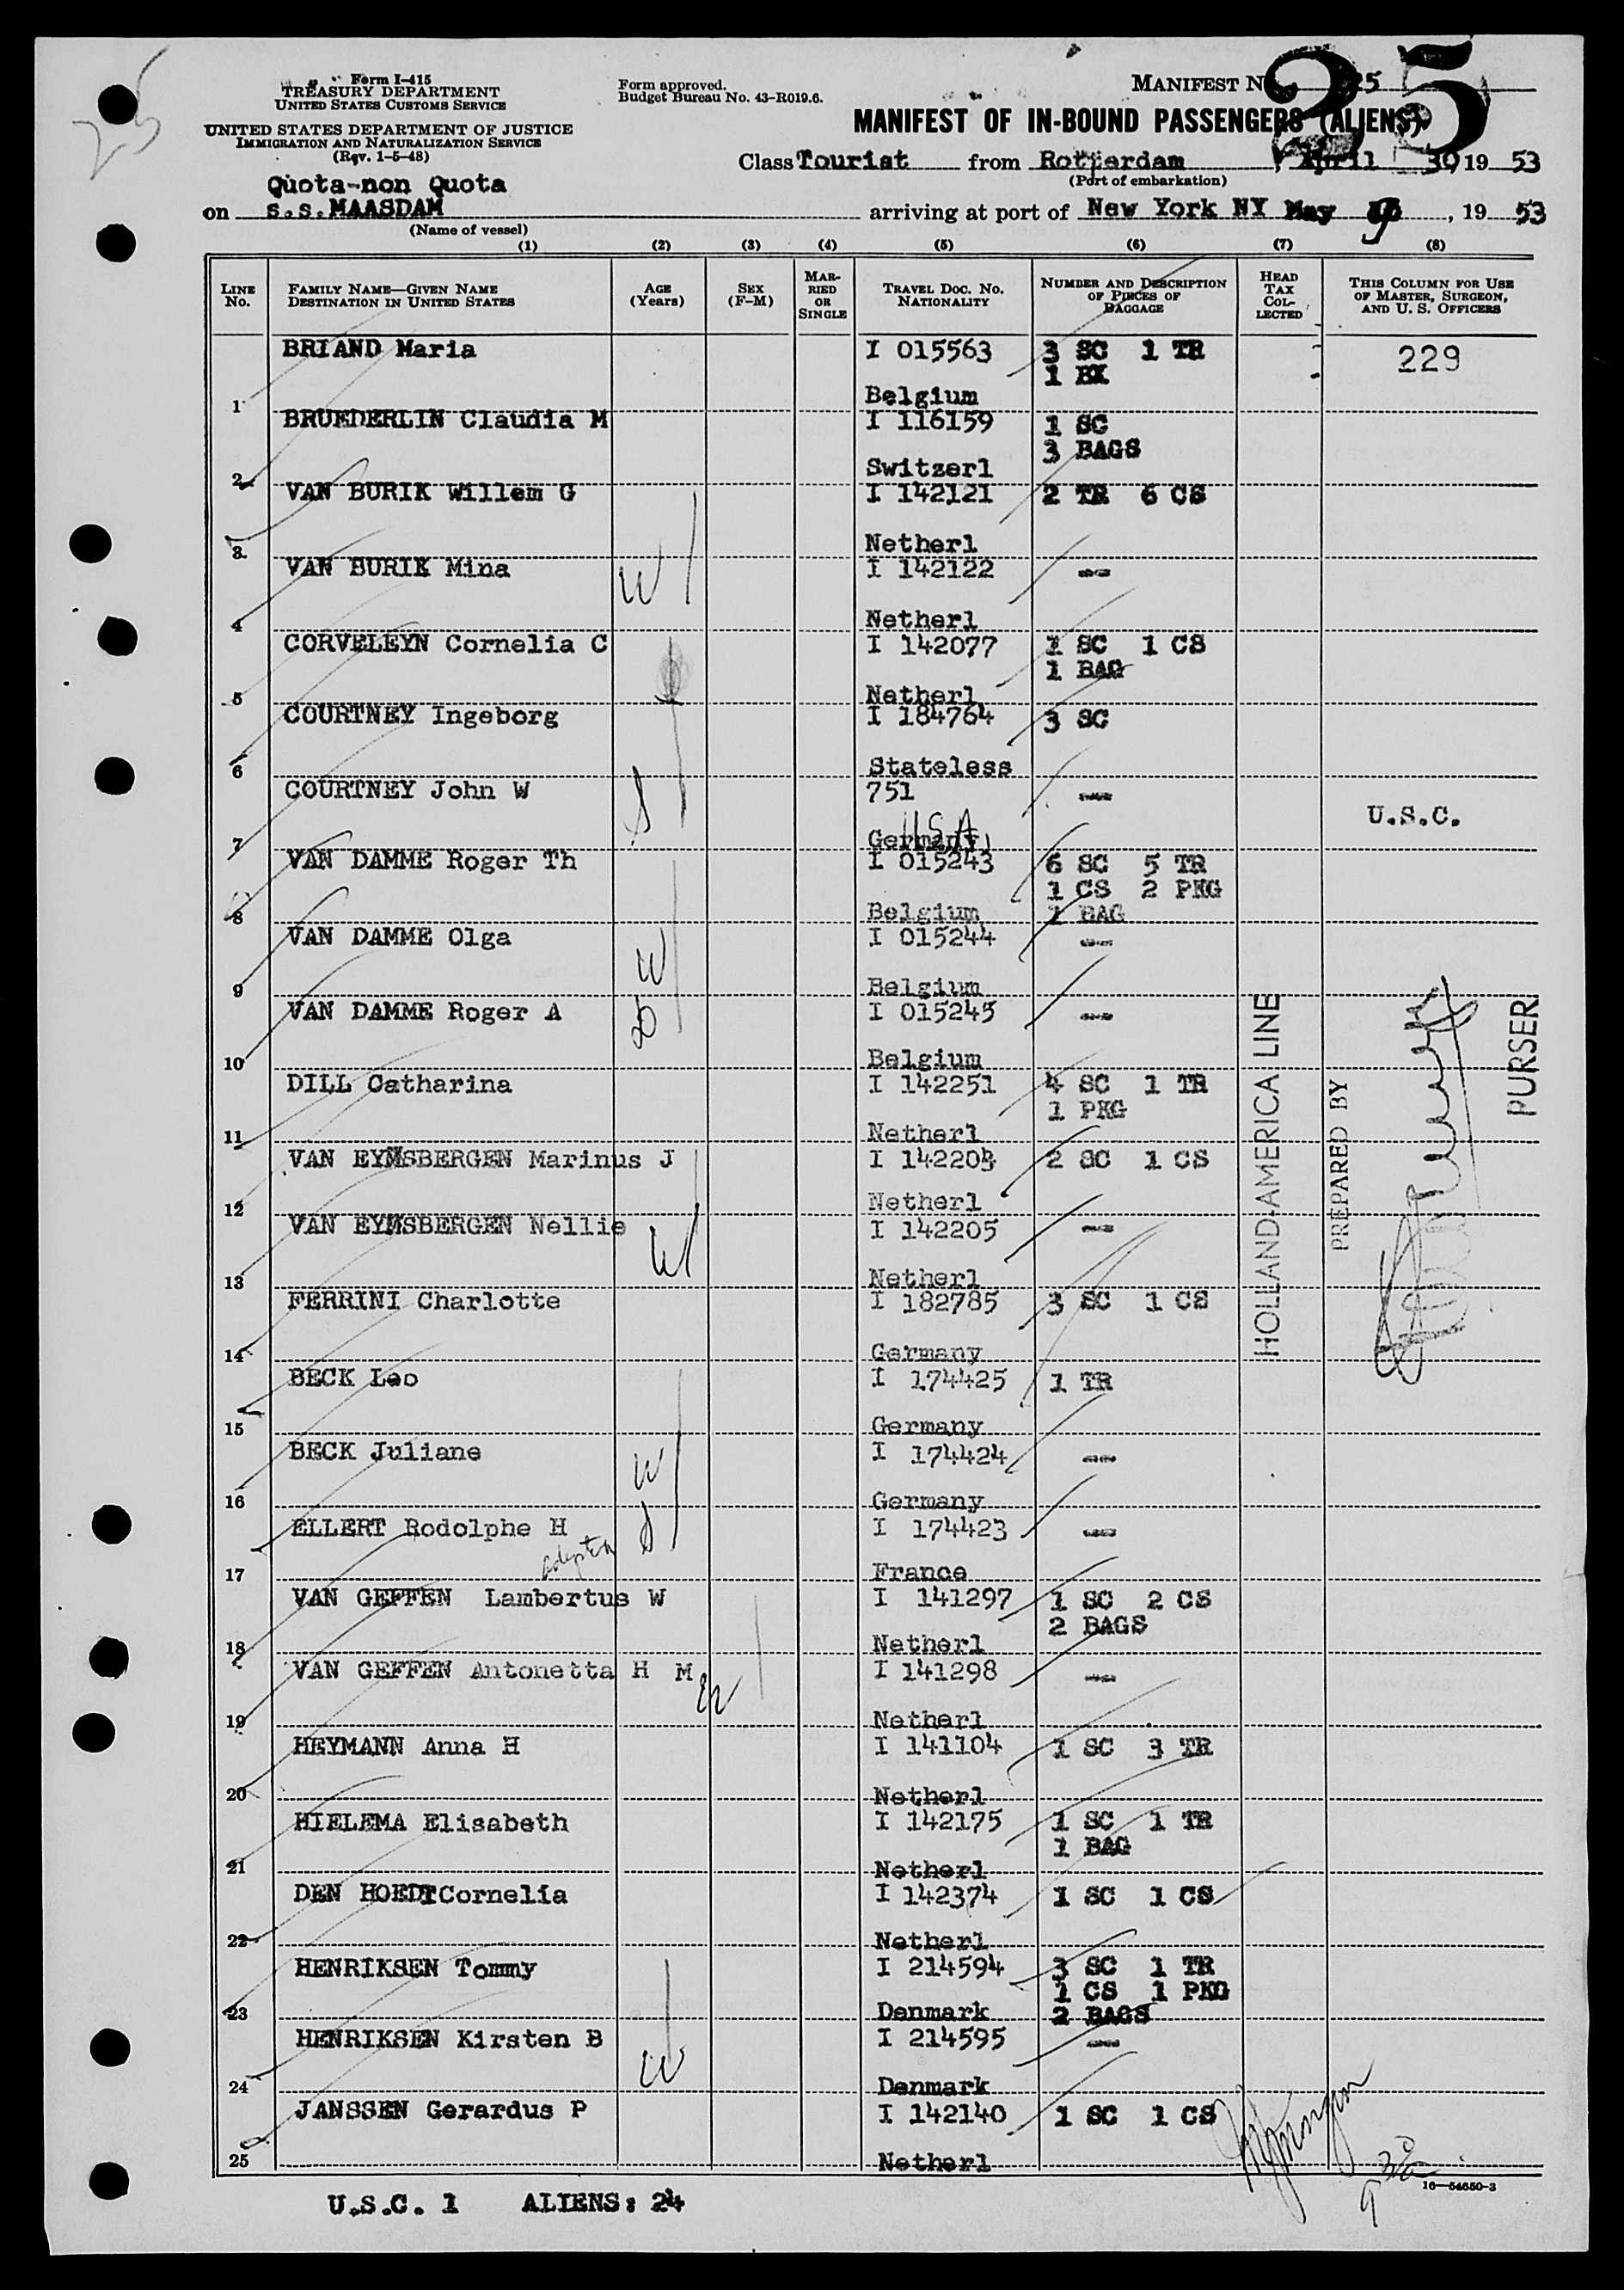 Form I-415
TREASURY DEPARTMENT
UNITED STATES CUSTOMS SERVICE
UNITED STATES DEPARTMENT OF JUSTICE
IMMIGRATION AND NATURALIZATION SERVICE
(Rev. 1-5-48)
Form approved.
Budget Bureau No. 43-R019.6.
25
MANIFEST N
25
MANIFEST OF IN-BOUND PASSENGERS (ALIENS)
Class Tourist from Rotterdam, April 30, 19 53
(Port of embarkation)
Quota-non Quota
on s.s.MAASDAM arriving at port of New York NY May 9, 19 53
(Name of vessel)
(1) (2) (3) (4) (5) (6) (7) (8)
LINE No. FAMILY NAME—GIVEN NAME DESTINATION IN UNITED STATES AGE (Years) SEX (F-M) MARRIED OR SINGLE TRAVEL DOC. NO. NATIONALITY NUMBER AND DESCRIPTION OF PIECES OF BAGGAGE HEAD TAX COLLECTED THIS COLUMN FOR USE OF MASTER, SURGEON, AND U. S. OFFICERS
BRIAND Maria I 015563 3 SC 1 TR 229
1 BX
1 Belgium
BRUEDERLIN Claudia M I 116159 1 SC
3 BAGS
2 Switzerl
VAN BURIK Willem G I 142121 2 TR 6 CS
3 Netherl
VAN BURIK Mina W I 142122 —
4 Netherl
CORVELEYN Cornelia C I 142077 1 SC 1 CS
1 BAG
5 Netherl
COURTNEY Ingeborg I 184764 3 SC
6 Stateless
COURTNEY John W S 751 — U.S.C.
USA
7 Germany
VAN DAMME Roger Th I 015243 6 SC 5 TR
1 CS 2 PKG
8 Belgium 1 BAG
VAN DAMME Olga W I 015244 —
9 Belgium
VAN DAMME Roger A I 015245 —
10 Belgium
DILL Catharina I 142251 4 SC 1 TR
1 PKG
11 Netherl
VAN EYMSBERGEN Marinus J I 142204 2 SC 1 CS
12 Netherl
VAN EYMSBERGEN Nellie W I 142205 —
13 Netherl
FERRINI Charlotte I 182785 3 SC 1 CS
14 Germany
BECK Leo I 174425 1 TR
15 Germany
BECK Juliane W I 174424 —
16 Germany
ELLERT Rodolphe H S I 174423 —
17 France
VAN GEFFEN Lambertus W I 141297 1 SC 2 CS
2 BAGS
18 Netherl
VAN GEFFEN Antonetta H M W I 141298 —
19 Netherl
HEYMANN Anna H I 141104 1 SC 3 TR
20 Netherl
HIELEMA Elisabeth I 142175 1 SC 1 TR
1 BAG
21 Netherl
DEN HOEDT Cornelia I 142374 1 SC 1 CS
22 Netherl
HENRIKSEN Tommy I 214594 3 SC 1 TR
1 CS 1 PKG
23 Denmark 2 BAGS
HENRIKSEN Kirsten B W I 214595 —
24 Denmark
JANSSEN Gerardus P I 142140 1 SC 1 CS
25 Netherl
HOLLAND-AMERICA LINE
PREPARED BY
PURSER
16—54650-3
U.S.C. 1 ALIENS: 24